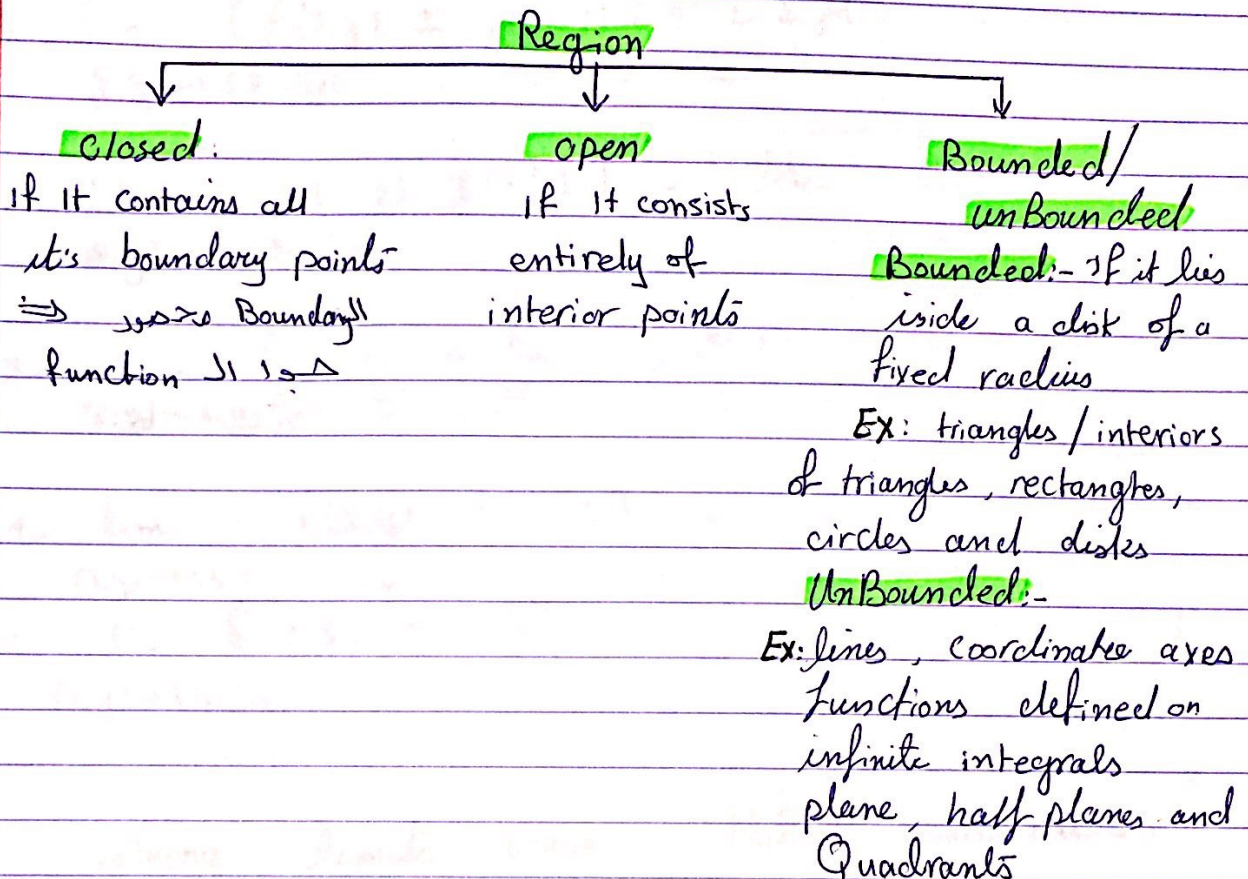 Region
Closed:
If It contains all
it's boundary points
⇐ محصور Boundaryال
جوا ال function
open
If It consists
entirely of
interior points
Bounded/
unBounded
Bounded:- If it lies
iside a disk of a
fixed radius
Ex: triangles / interiors
of triangles, rectangles,
circles and disks
UnBounded:-
Ex: lines, coordinate axes
functions defined on
infinite integrals
plane, half planes and
Quadrants